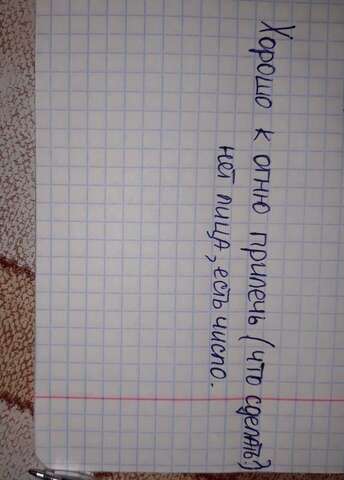 Хорошо к огню прилечь (что сделать?)
нет лица, есть число.